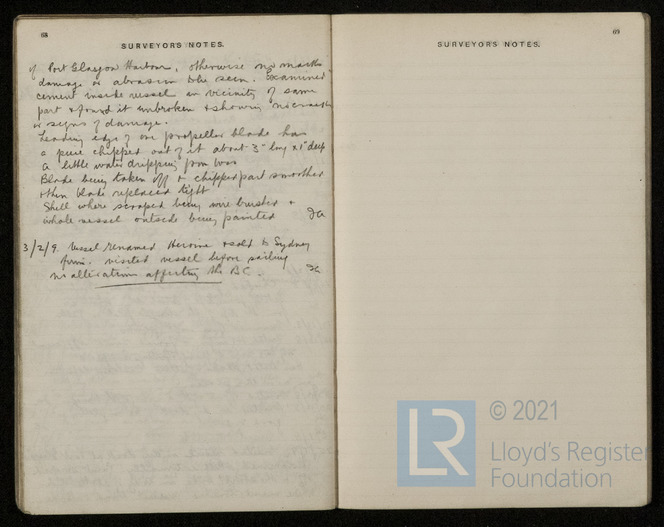 68
SURVEYORS NOTES.
of Port Glasgow Harbour, otherwise no marks
damage or abrasion to be seen. Examined
cement inside vessel in vicinity of same
part & found it unbroken & showing no cracks
or signs of damage.
Leading edge of one propeller blade has
a piece chipped out of it about 3" long x 1" deep
a little water dripping from boss
Blade being taken off & chipped part smoothed
& then blade replaced tight
Shell where scraped being wire brushed &
whole vessel outside being painted
3/2/9. Vessel renamed Heroine & sold to Sydney
firm. visited vessel before sailing
no alterations affecting the B.C.
69
SURVEYORS NOTES.
LR
© 2021
Lloyd's Register
Foundation